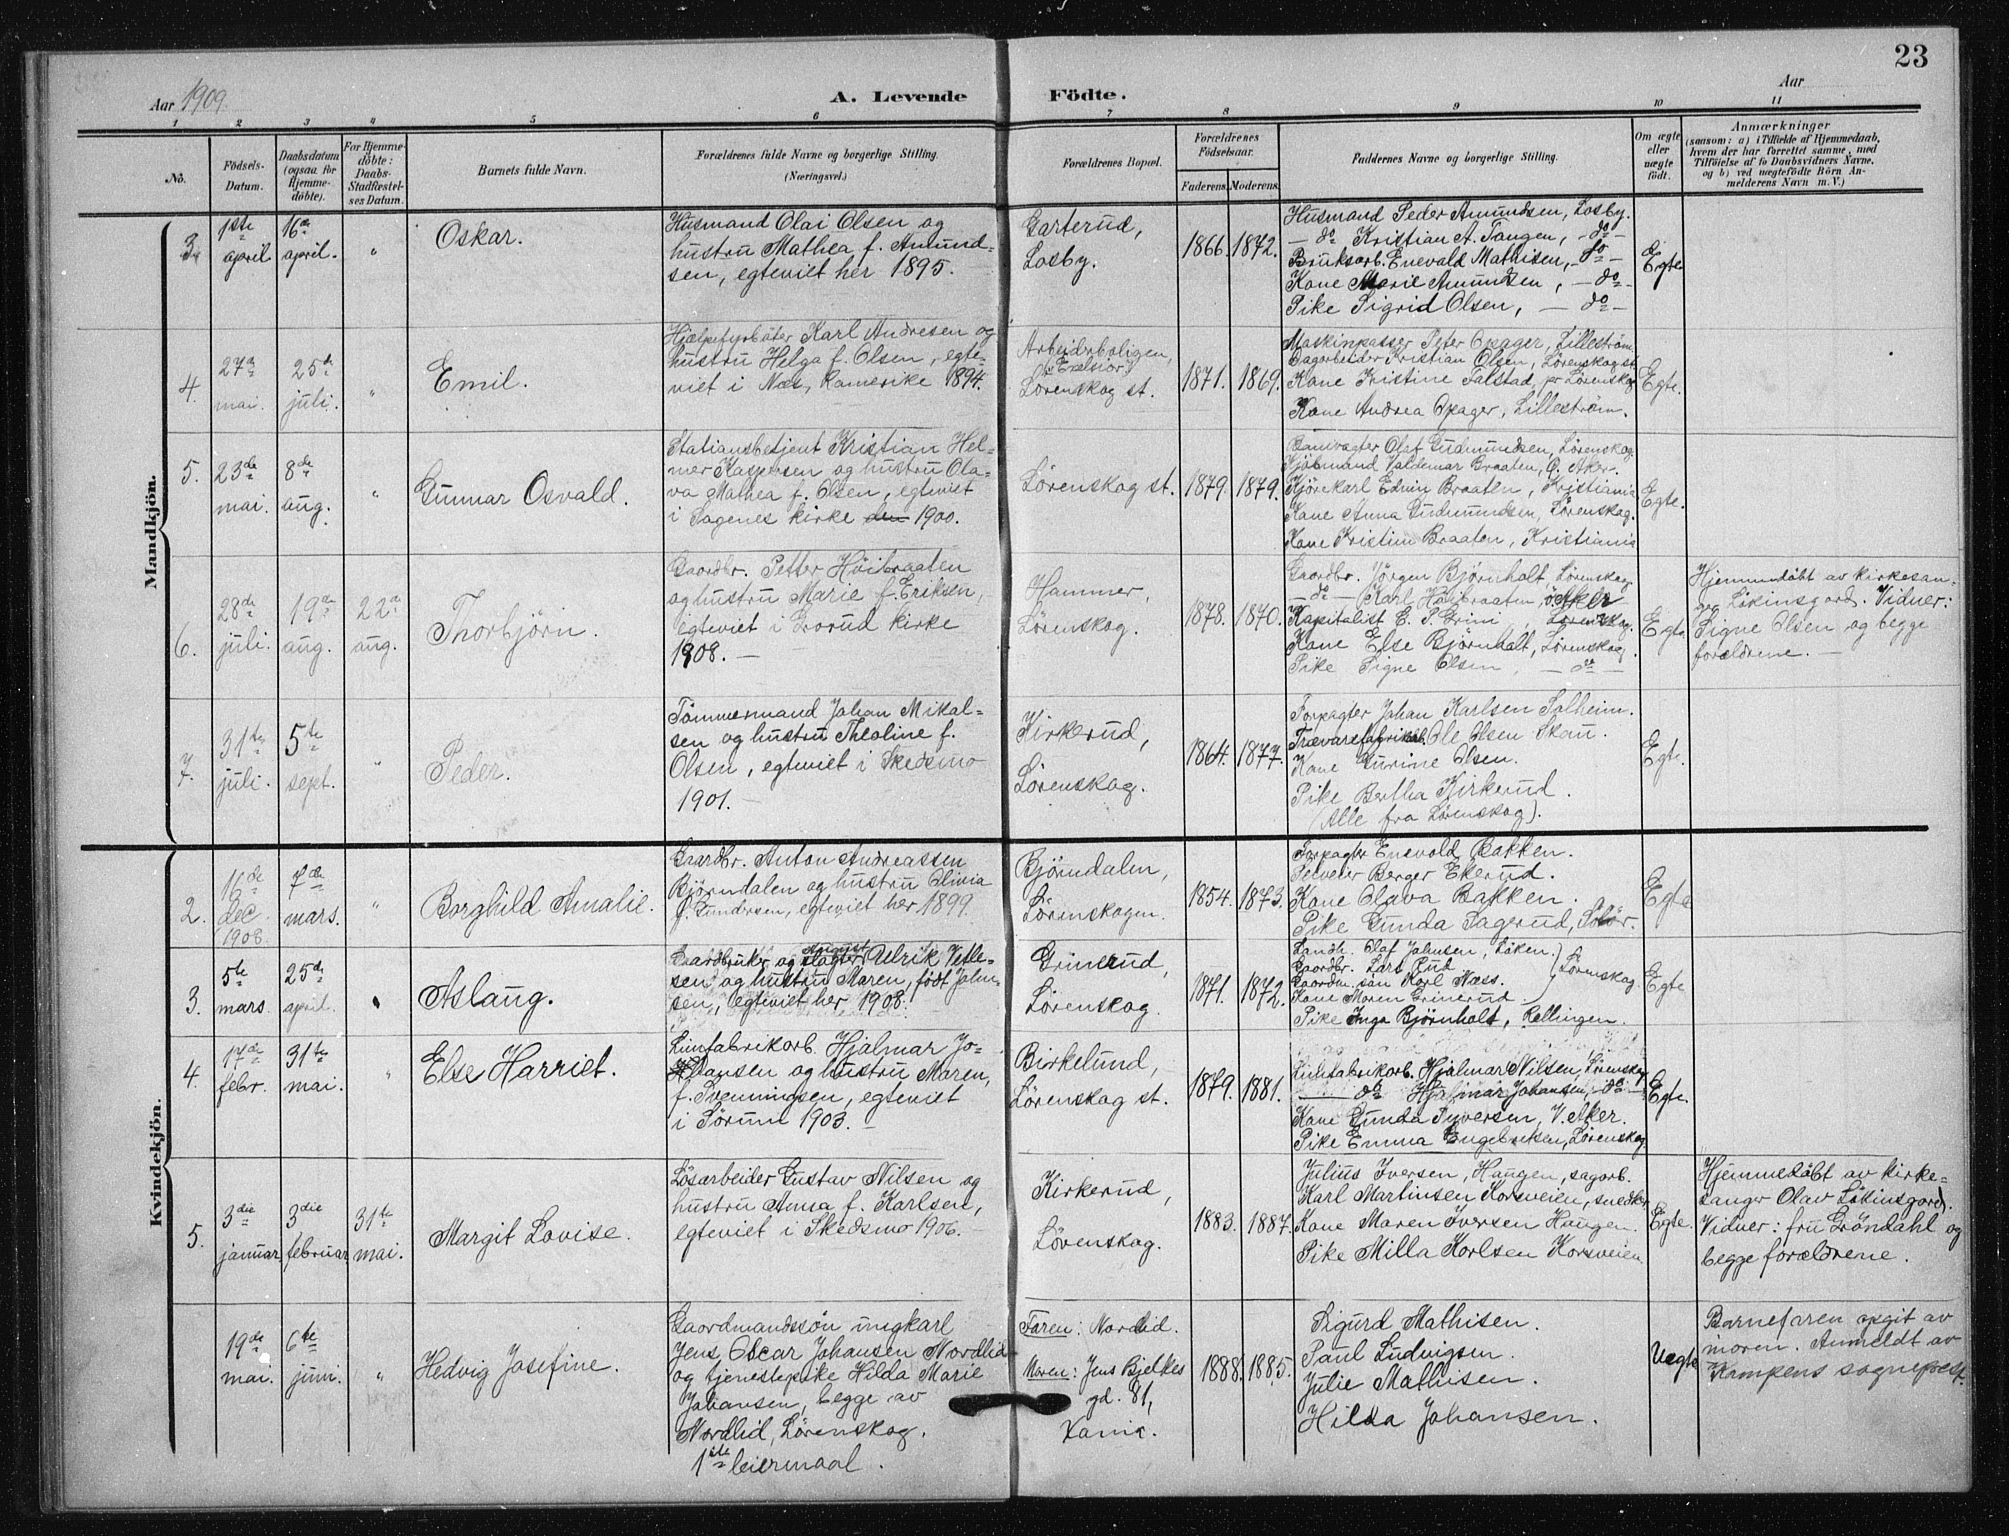 23
Aar 1909. A. Levende Födte. Aar
1 2 3 4 5 6 7 8 9 10 11
No.
Födsels-Datum.
Daabsdatum (ogsaa for Hjemme-döbte).
For Hjemme-döbte: Daabs-Stadfæstel-ses Datum.
Barnets fulde Navn.
Forældrenes fulde Navne og borgerlige Stilling. (Næringsvei.)
Forældrenes Bopæl.
Forældrenes Födselsaar.
Faderens. Moderens.
Faddernes Navne og borgerlige Stilling.
Om ægte eller uægte födt.
Anmærkninger
(saasom: a) i Tilfælde af Hjemmedaab, hvem der har forrettet samme, med Tilföielse af to Daabsvidners Navne, og b) ved uægtefödte Börn An-melderens Navn m. V.)
Mandkjön.
3. 1ste april 16de april. " Oskar.
Husmand Olai Olsen og
hustru Mathea f. Amund-
sen, egteviet her 1895.
Garterud,
Losby.
1866. 1872.
Husmand Peder Amundsen, Losby.
— do Kristian A. Tangen, — do —
Bruksarb. Enevald Mathisen, — do —
Kone Marie Amundsen, — do —
Pike Sigrid Olsen, — do —
Egte
4. 27de mai. 25de juli. " Emil.
Hjælpefyrbøter Karl Andresen og
hustru Helga f. Olsen, egte-
viet i Næs, Romerike 1894.
Arbeiderboligen,
"Exelsior"
Lørenskog st.
1871. 1869.
Maskinpasser Peter Opager, Lillestrøm
Dagarbeider Kristian Olsen, Lørenskog st.
Kone Kristine Falstad, pr Lørenskog
Kone Andrea Opager, Lillestrøm.
Egte.
5. 23de mai. 8de aug. " Gunnar Osvald.
Stationsbetjent Kristian Hel-
mer Kaspersen og hustru Ola-
va Mathea f. Olsen, egteviet
i Sagenes kirke den 1900.
Lørenskog st.
1879. 1879.
Banevagter Olaf Gudmundsen, Lørenskog
Kjøbmand Valdemar Braaten, Ø. Aker.
Kjørekarl Edvin Braaten, Kristiania
Kone Anna Gudmundsen, Lørenskog.
Kone Kristine Braaten, Kristiania
Egte.
6. 28de juli. 19de aug. 22de aug. Thorbjörn.
Gaardbr. Petter Høibraaten
og hustru Marie f. Eriksen,
egteviet i Grorud kirke
1908. —
Hammer,
Lørenskog.
1878. 1870.
Gaardbr. Jørgen Bjørnholt, Lørenskog
— do — Karl Høibraaten, Ø. Aker
Kapitalist E. P. Grim, Lørenskog.
Kone Else Bjørnholt, Lørenskog.
Pike Signe Olsen, — do —
Egte
Hjemmedøbt av kirkesan-
ger Løkinsgard. Vidner:
Signe Olsen og begge
forældrene. —
7. 31te juli. 5te sept. " Peder.
Tömmermand Johan Mikal-
sen og hustru Theoline f.
Olsen, egteviet i Skedsmo
1901. —
Kirkerud,
Lörenskog.
1864. 1877.
Forpagter Johan Karlsen Solheim.
Trævarefabrikarb. Ole Olsen Skau.
Kone Gurine Olsen.
Pike Bertha Kirkerud.
(Alle fra Lørenskog).
Egte.
Kvindekjön.
2. 16de dec. 1908. 7de mars. " Borghild Amalie.
Gaardbr. Anton Andreassen
Björndalen og hustru Olivia
f. Gundersen, egteviet her 1899.
Björndalen,
Lörenskogen.
1854. 1873.
Forpagter Enevold Bakken.
Selveier Berger Ekerud.
Kone Olava Bakken.
Pike Gunda Sagerud, Solør.
Egte
3. 5te mars. 25de april. " Aslaug.
Gaardbruker og August Ulrik Vetle-
sen og hustru Maren, født John-
sen, egteviet her 1908.
Grinerud,
Lörenskog.
1871. 1872.
Landh. Olaf Johnsen, Løken.
Gaardbr. Lars Rud
Gaardm. søn Karl Næss.
Kone Maren Grinerud.
Lørenskog.
Pike Inga Bjørnholt, Rellingen.
Egte
4. 17de febr. 31te mai. " Else Harriet.
Limfabrikarb. Hjalmar Jo-
hansen og hustru Maren,
f. Svenningsen, egteviet
i Sörum 1903. —
Birkelund,
Lörenskog st.
1879. 1881.
Limfabrikarb. Hjalmar Nilsen, Lørenskog
— do Hjalmar Johansen, — do —
Kone Gunda Syversen, V. Aker.
Pike Emma Engebretsen, Lørenskog
Egte.
5. 3die januar. 3die februar 31te mai. Margit Lovise.
Løsarbeider Gustav Nilsen og
hustru Anna f. Karlsen,
egteviet i Skedsmo 1906. —
Kirkerud,
Lörenskog.
1883. 1887.
Julius Iversen, Haugen, sagarb.
Karl Martinsen Korsveien, snedker
Kone Maren Iversen Haugen.
Pike Milla Karlsen Korsveien
Egte.
Hjemmedøbt av kirke-
sanger Olav Løkinsgard.
Vidner: fru Gröndahl og
begge forældrene.
19de mai. 6te juni. " Hedvig Josefine.
Gaardmandssön ungkarl
Jens Oscar Johansen Nordlid
og tjenestepike Hilda Marie
Johansen, begge av
Nordlid, Lörenskog.
1ste leiermaal.
Faren: Nordlid.
Moren: Jens Bjelkes
gd. 81,
Kania.
1888. 1885.
Sigurd Mathisen.
Paul Ludvigsen.
Julie Mathisen.
Hilda Johansen.
Uegte
Barnefaren opgit av
moren. Anmeldt av
Kampens sogneprest.